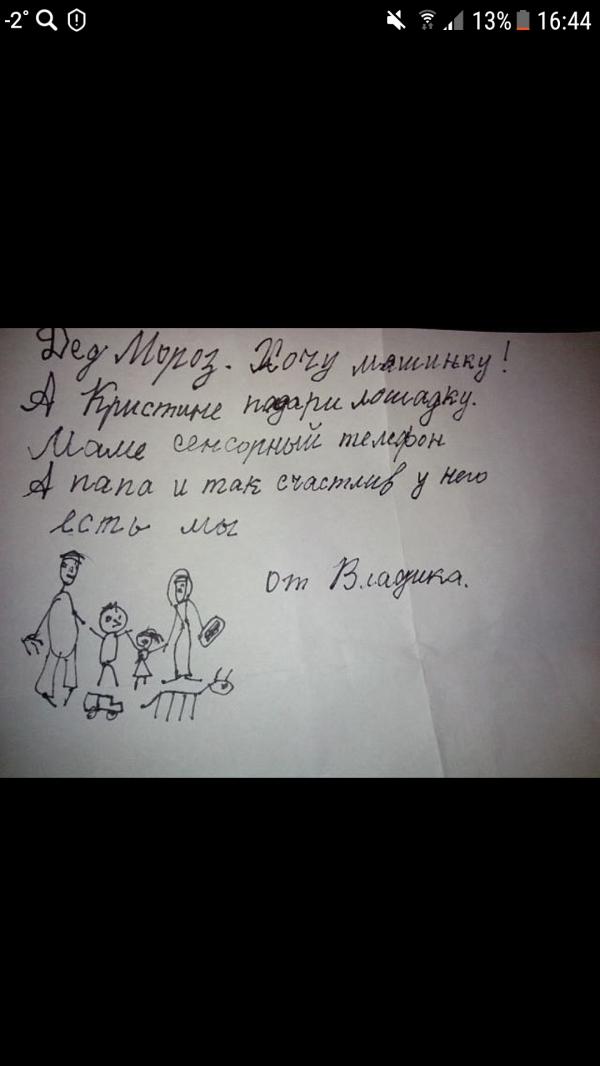 -2° 13% 16:44
Дед Мороз. Хочу машинку!
А Кристине подари лошадку.
Маме сенсорный телефон
А папа и так счастлив у него
есть мы
от Владика.